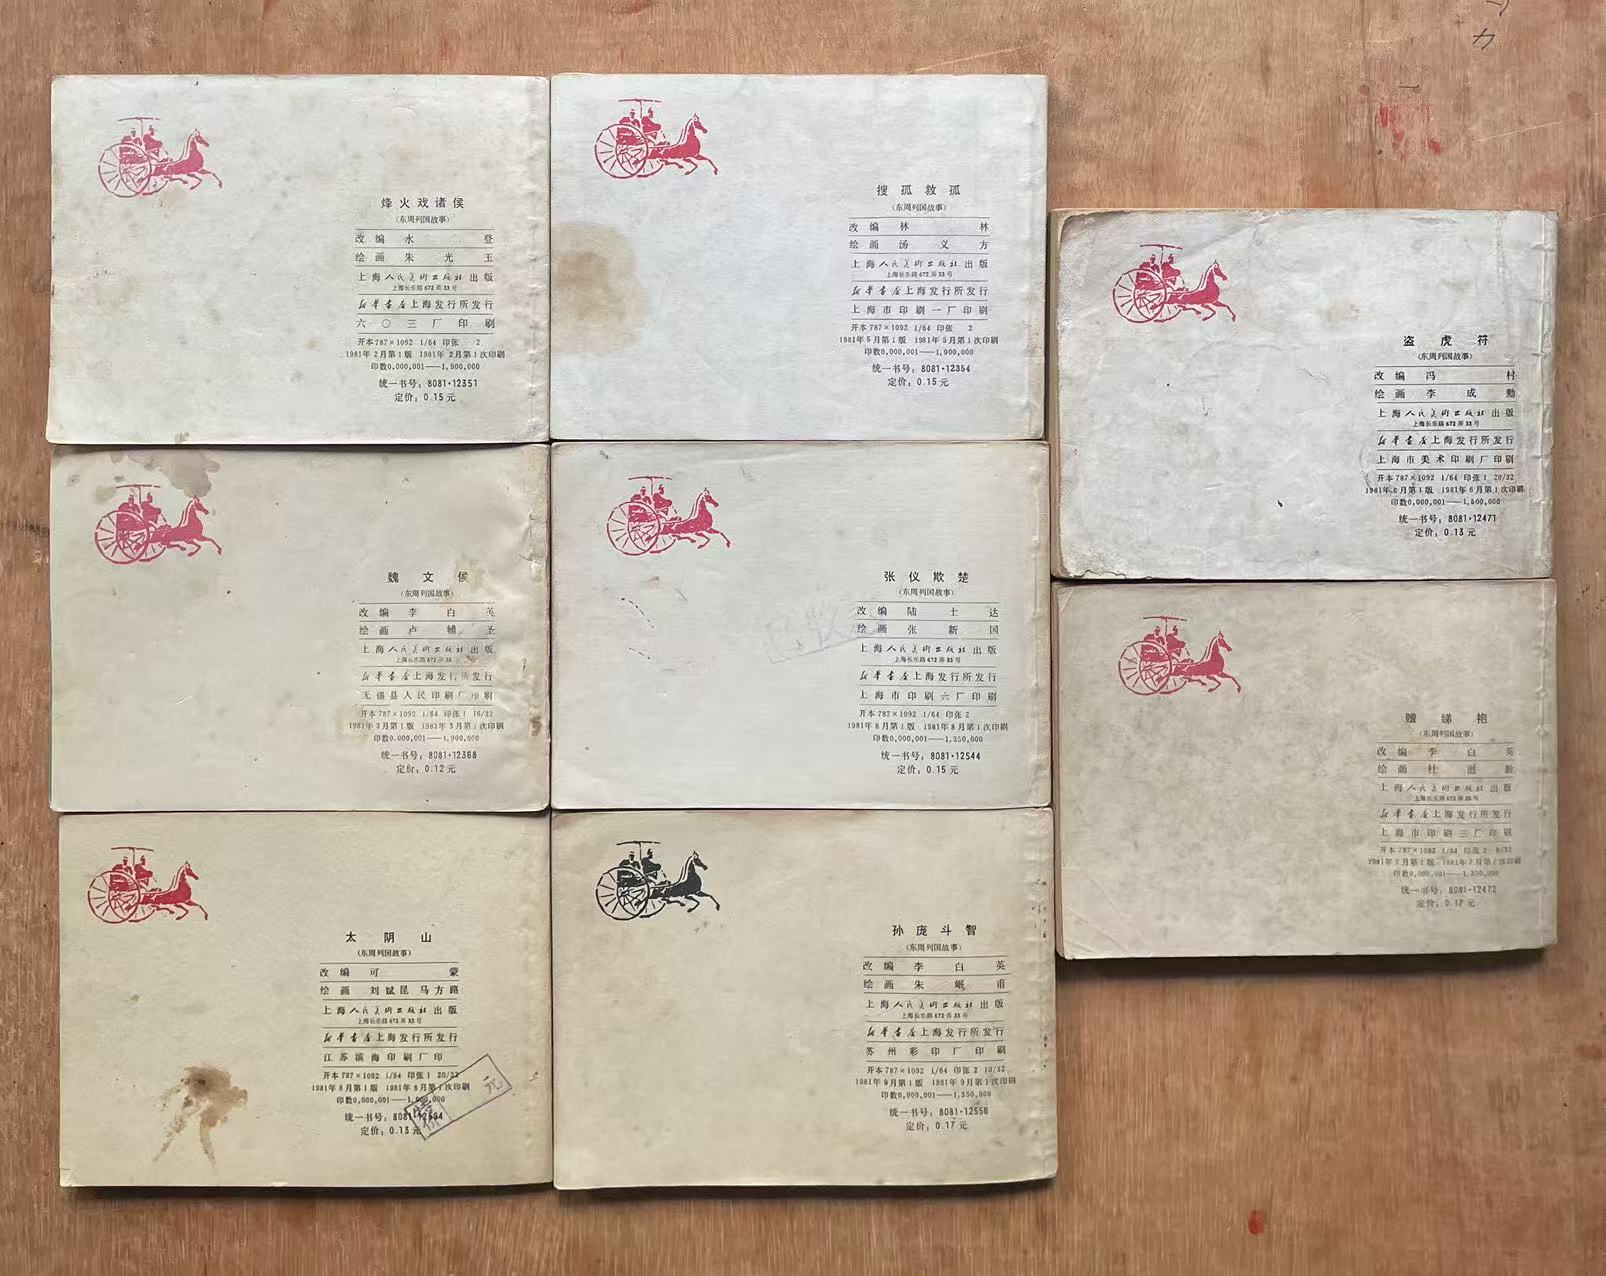 烽火戏诸侯
(东周列国故事)
改编 水登
绘画 朱光玉
上海人民美術出版社出版
上海长乐路672弄33号
新华书店上海发行所发行
六〇三厂印刷
开本787×1092 1/64 印张 2
1981年2月第1版 1981年2月第1次印刷
印数0,000,001——1,900,000
统一书号：8081·12351
定价：0.15元
搜孤救孤
(东周列国故事)
改编 林林
绘画 汤义方
上海人民美術出版社出版
上海长乐路672弄33号
新华书店上海发行所发行
上海市印刷一厂印刷
开本787×1092 1/64 印张 2
1981年5月第1版 1981年5月第1次印刷
印数0,000,001——1,900,000
统一书号：8081·12354
定价：0.15元
盗虎符
(东周列国故事)
改编 冯村
绘画 李成勳
上海人民美術出版社出版
上海长乐路672弄33号
新华书店上海发行所发行
上海市美术印刷厂印刷
开本787×1092 1/64 印张1 20/32
1981年6月第1版 1981年6月第1次印刷
印数0,000,001——1,500,000
统一书号：8081·12471
定价：0.13元
魏文侯
(东周列国故事)
改编 李白英
绘画 卢辅圣
上海人民美術出版社出版
上海长乐路672弄33
新华书店上海发行所发行
无锡县人民印刷厂印刷
开本787×1092 1/64 印张1 16/32
1981年3月第1版 1981年3月第1次印刷
印数0,000,001——1,900,000
统一书号：8081·12368
定价：0.12元
张仪欺楚
(东周列国故事)
改编 陆士达
绘画 张新国
上海人民美術出版社出版
上海长乐路672弄33号
新华书店上海发行所发行
上海市印刷六厂印刷
开本787×1092 1/64 印张2
1981年8月第1版 1981年8月第1次印刷
印数0,000,001——1,350,000
统一书号：8081·12544
定价：0.15元
赠绨袍
(东周列国故事)
改编 李白英
绘画 杜滋龄
上海人民美術出版社出版
上海长乐路672弄33号
新华书店上海发行所发行
上海市印刷三厂印刷
开本787×1092 1/64 印张2 8/32
1981年7月第1版 1981年7月第1次印刷
印数0,000,001——1,350,000
统一书号：8081·12472
定价：0.17元
太阴山
(东周列国故事)
改编 可蒙
绘画 刘斌昆 马方路
上海人民美術出版社出版
上海长乐路672弄33号
新华书店上海发行所发行
江苏滨海印刷厂印
开本787×1092 1/64 印张1 20/32
1981年8月第1版 1981年8月第1次印刷
印数0,000,001——1,900,000
统一书号：8081·12594
定价：0.13元
特价 元
孙庞斗智
(东周列国故事)
改编 李白英
绘画 朱岷甫
上海人民美術出版社出版
上海长乐路672弄33号
新华书店上海发行所发行
苏州彩印厂印刷
开本787×1092 1/64 印张2 10/32
1981年9月第1版 1981年9月第1次印刷
印数0,000,001——1,350,000
统一书号：8081·12558
定价：0.17元